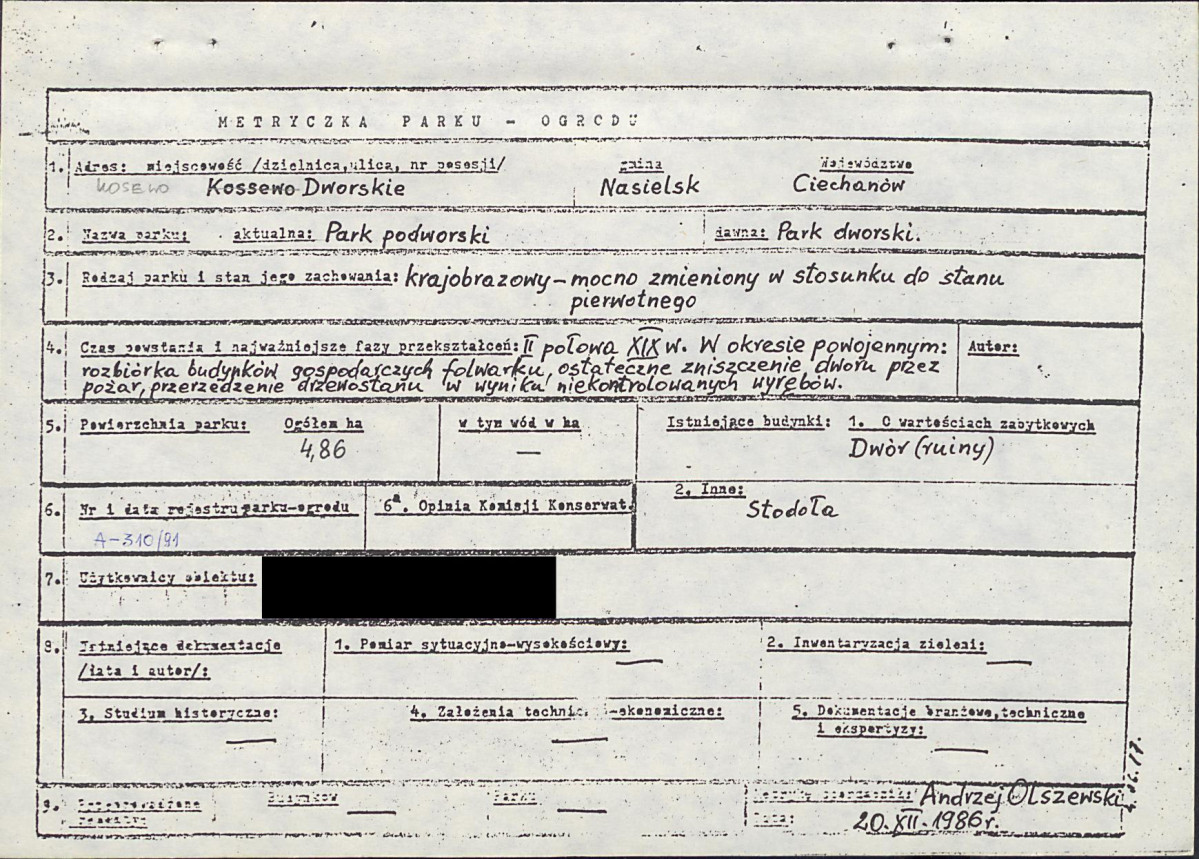 METRYCZKA PARKU - OGRODU
1. Adres: miejscowość /dzielnica,ulica, nr posesji/ gmina Województwo
KOSEWO Kossewo Dworskie Nasielsk Ciechanów
2. Nazwa parku: aktualna: Park podworski dawna: Park dworski.
3. Rodzaj parku i stan jego zachowania: krajobrazowy – mocno zmieniony w stosunku do stanu
pierwotnego
4. Czas powstania i najważniejsze fazy przekształceń: II połowa XIX w. W okresie powojennym: Autor:
rozbiórka budynków gospodarczych folwarku, ostateczne zniszczenie dworu przez
pożar, przerzedzenie drzewostanu w wyniku niekontrolowanych wyrębów.
5. Powierzchnia parku: Ogółem ha w tym wód w ha Istniejące budynki: 1. O wartościach zabytkowych
4,86 — Dwór (ruiny)
6. Nr i data rejestru parku-ogrodu 6a. Opinia Komisji Konserwat. 2. Inne:
Stodoła
A-310/91
7. Użytkownicy obiektu:
8. Istniejące dokumentacje 1. Pomiar sytuacyjno-wysokościowy: — 2. Inwentaryzacja zieleni: —
/data i autor/:
3. Studium historyczne: — 4. Założenia technic -ekonomiczne: — 5. Dokumentacje branżowe,techniczne
i ekspertyzy: —
9. Przeprowadzone Budynków — Parku — Metrykę sporządził: Andrzej Olszewski
remonty Data: 20.XII.1986r.